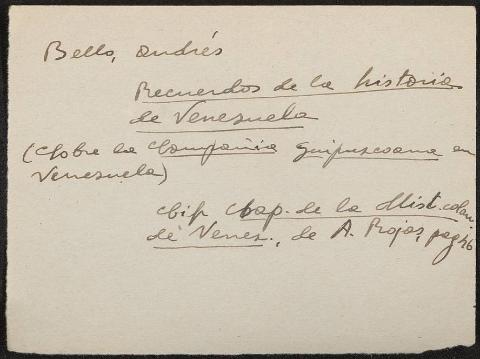 Bello, Andrés
Recuerdos de la historia
de Venezuela
(Sobre la Compañia Guipuzcoana en
Venezuela)
Cap. de la Hist. colon.
de Venez., de A. Rojas, pag 46